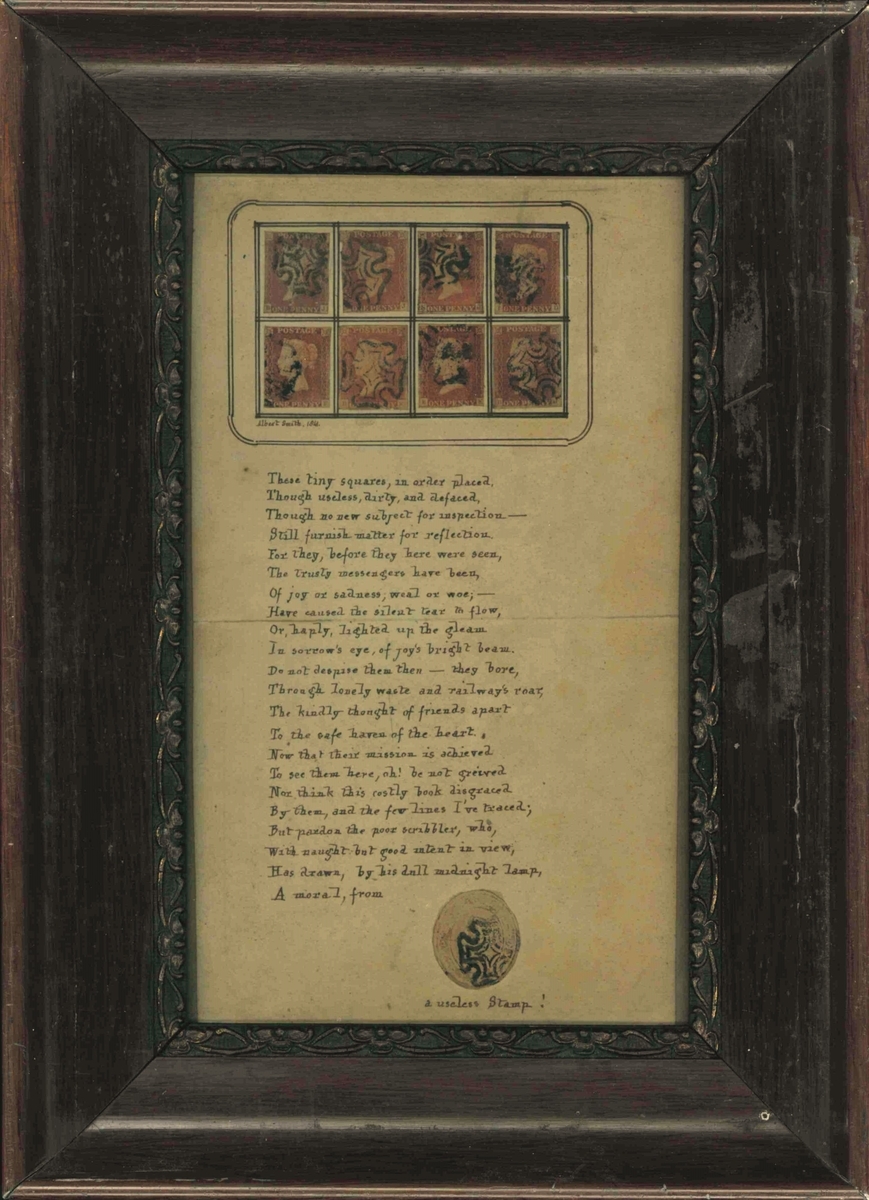 POSTAGE
ONE PENNY
POSTAGE
ONE PENNY
POSTAGE
ONE PENNY
ONE PENNY
POSTAGE
ONE PENNY
POSTAGE
ONE PENNY
POSTAGE
Albert Smith,
These tiny squares, in order placed,
Though useless, dirty, and defaced,
Though no new subject for inspection —
Still furnish matter for reflection.
For they, before they here were seen,
The trusty messengers have been,
Of joy or sadness, weal or woe; —
Have caused the silent tear to flow,
Or, haply, lighted up the gleam
In sorrow's eye, of joy's bright beam.
Do not despise them then — they bore,
Through lonely waste and railway's roar,
The kindly thought of friends apart
To the safe haven of the heart.
Now that their mission is achieved
To see them here, oh! be not greived
Nor think this costly book disgraced
By them, and the few lines I've traced;
But pardon the poor scribbler, who,
With naught but good intent in view,
Has drawn, by his dull midnight lamp,
A moral, from
a useless Stamp!